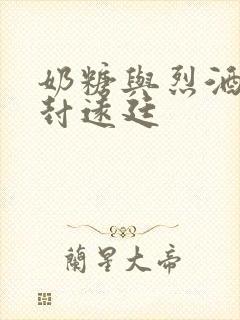 奶糖與烈酒
封遠廷
蘭星大帝